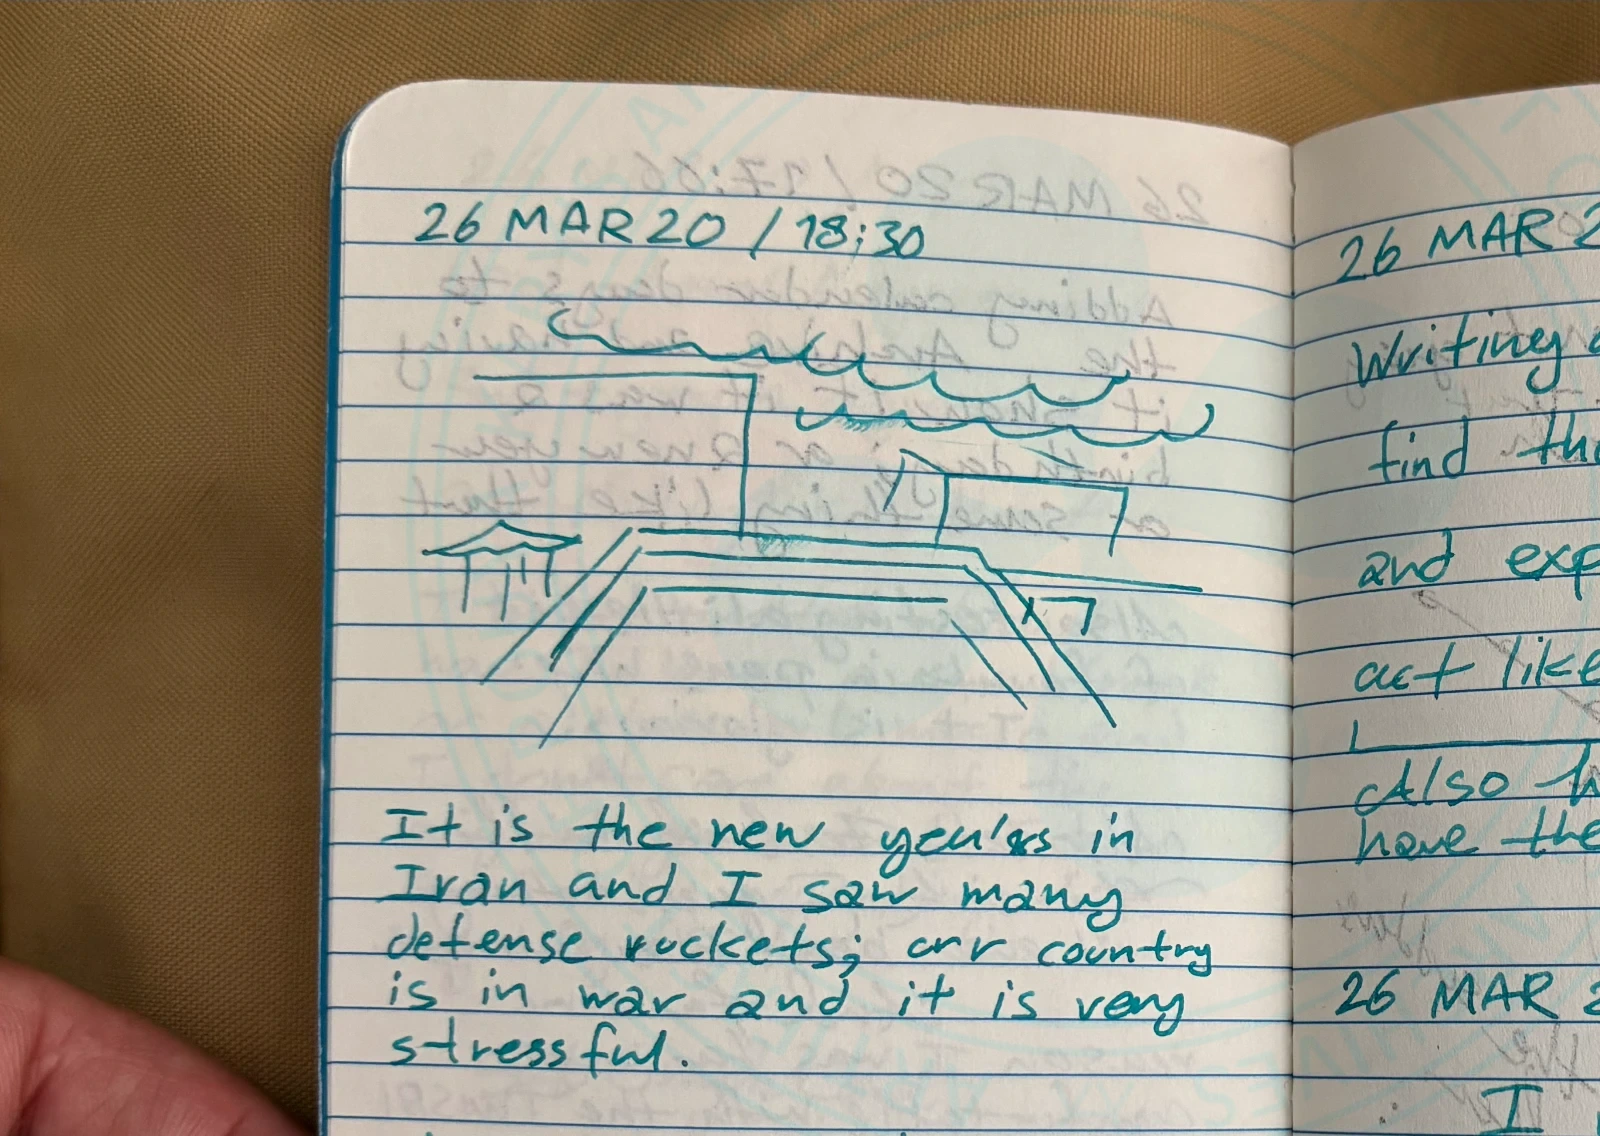 26 MAR 20 / 18:30
It is the new year's in
Iran and I saw many
defense rockets; our country
is in war and it is very
stressful.
26 MAR 2
Writing
find
and exp
act like
Also h
have the
26 MAR 2
I